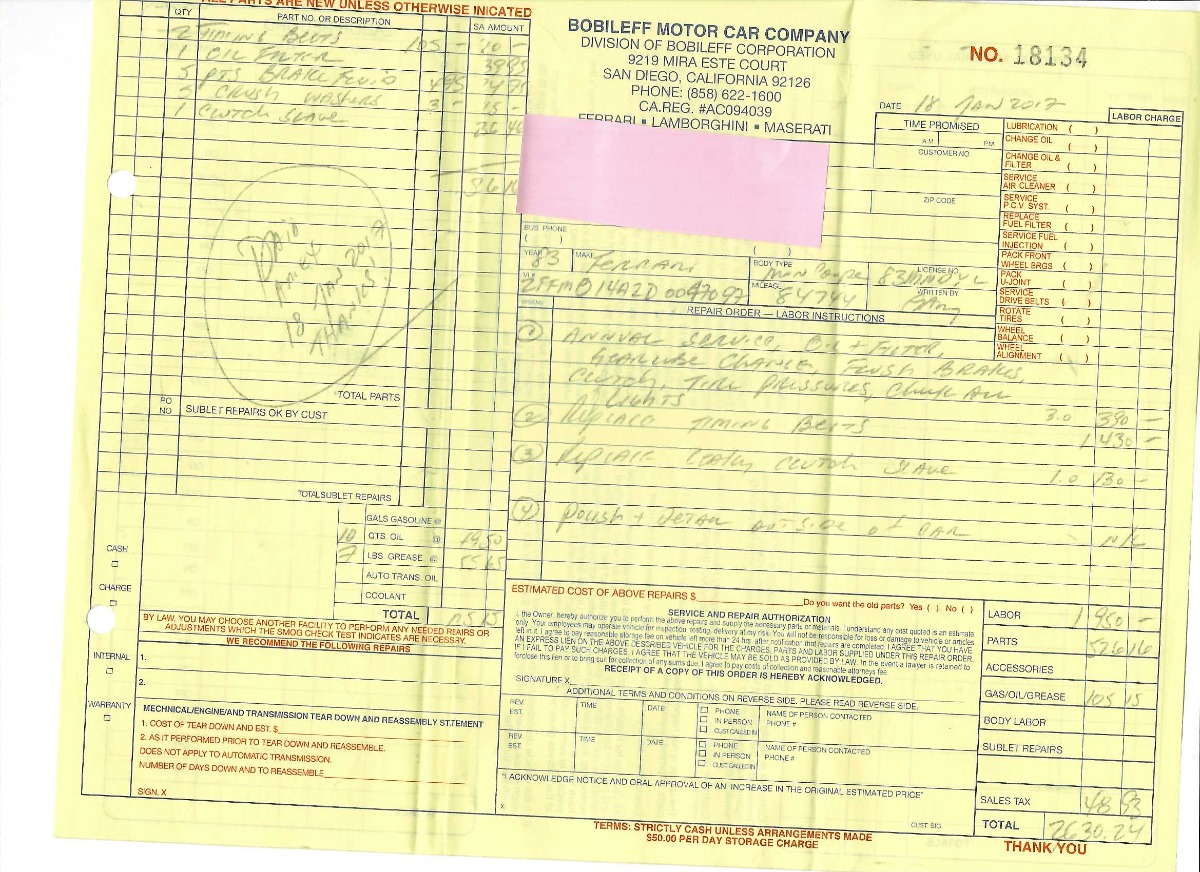 ALL PARTS ARE NEW UNLESS OTHERWISE INICATED
QTY PART NO. OR DESCRIPTION SA AMOUNT
2 TIMING BELTS 105 -
1 OIL FILTER
5 PTS BRAKE FLUID 495
5 CRUSH WASHERS 3 - 15 -
1 CLUTCH SLAVE
PAID
AMEX
18 JAN 2017
THANKS,
TOTAL PARTS
PO NO SUBLET REPAIRS OK BY CUST
TOTALSUBLET REPAIRS
GALS GASOLINE @
10 QTS. OIL @ 49.50
7 LBS. GREASE @ 55.65
AUTO TRANS. OIL
COOLANT
TOTAL
CASH
CHARGE
INTERNAL
WARRANTY
BY LAW, YOU MAY CHOOSE ANOTHER FACILITY TO PERFORM ANY NEEDED REAIRS OR
ADJUSTMENTS WHICH THE SMOG CHECK TEST INDICATES ARE NECESSARY.
WE RECOMMEND THE FOLLOWING REPAIRS
1.
2.
MECHNICAL/ENGINE/AND TRANSMISSION TEAR DOWN AND REASSEMBLY STTEMENT
1. COST OF TEAR DOWN AND EST. $
2. AS IT PERFORMED PRIOR TO TEAR DOWN AND REASSEMBLE.
DOES NOT APPLY TO AUTOMATIC TRANSMISSION.
NUMBER OF DAYS DOWN AND TO REASSEMBLE
SIGN. X
BOBILEFF MOTOR CAR COMPANY
DIVISION OF BOBILEFF CORPORATION
9219 MIRA ESTE COURT
SAN DIEGO, CALIFORNIA 92126
PHONE: (858) 622-1600
CA.REG. #AC094039
FERRARI • LAMBORGHINI • MASERATI
NO. 18134
DATE 18 JAN 2017
LABOR CHARGE
TIME PROMISED
A.M. P.M.
CUSTOMER NO
ZIP CODE
LUBRICATION ( )
CHANGE OIL ( )
CHANGE OIL & FILTER ( )
SERVICE AIR CLEANER ( )
SERVICE P.C.V. SYST. ( )
REPLACE FUEL FILTER ( )
SERVICE FUEL INJECTION ( )
PACK FRONT WHEEL BRGS ( )
PACK U-JOINT ( )
SERVICE DRIVE BELTS ( )
ROTATE TIRES ( )
WHEEL BALANCE ( )
WHEEL ALIGNMENT ( )
BUS. PHONE
( ) ( )
YEAR 83 MAKE FERRARI BODY TYPE LICENSE NO.
MILEAGE 84744 WRITTEN BY
REPAIR ORDER — LABOR INSTRUCTIONS
① ANNUAL SERVICE, OIL + FILTER,
GEARLUBE CHANGE, FLUSH BRAKES,
CLUTCH, TIRE PRESSURES, CHECK ALL
LIGHTS 3.0 390 -
② REPLACE TIMING BELTS 1 430 -
③ REPLACE LEAKY CLUTCH SLAVE 1.0 130 -
④ POLISH + DETAIL OUTSIDE OF CAR N/C
ESTIMATED COST OF ABOVE REPAIRS $ Do you want the old parts? Yes ( ) No ( )
SERVICE AND REPAIR AUTHORIZATION
I, the Owner, hereby authorize you to perform the above repairs and supply the necessary parts or materials. I understand any cost quoted is an estimate
only. Your employees may operate vehicle for inspection, testing, delivery at my risk. You will not be responsible for loss or damage to vehicle or articles
left in it. I agree to pay reasonable storage fee on vehicle left more than 24 hrs. after notification that repairs are completed. I AGREE THAT YOU HAVE
AN EXPRESS LIEN ON THE ABOVE DESCRIBED VEHICLE FOR THE CHARGES, PARTS AND LABOR SUPPLIED UNDER THIS REPAIR ORDER.
IF I FAIL TO PAY SUCH CHARGES. I AGREE THAT THE VEHICLE MAY BE SOLD AS PROVIDED BY LAW. In the event a lawyer is retained to
forclose this lien or to bring suit for collection of any sums due. I agree to pay costs of collection and reasonable attorneys fees.
RECEIPT OF A COPY OF THIS ORDER IS HEREBY ACKNOWLEDGED.
SIGNATURE X
ADDITIONAL TERMS AND CONDITIONS ON REVERSE SIDE. PLEASE READ REVERSE SIDE.
REV. EST. TIME DATE PHONE IN PERSON CUST CALLED IN NAME OF PERSON CONTACTED PHONE #
REV. EST. TIME DATE PHONE IN PERSON CUST CALLED IN NAME OF PERSON CONTACTED PHONE #
"I ACKNOWLEDGE NOTICE AND ORAL APPROVAL OF AN INCREASE IN THE ORIGINAL ESTIMATED PRICE"
X CUST SIG
LABOR 1950 -
PARTS 526 16
ACCESSORIES
GAS/OIL/GREASE 105 15
BODY LABOR
SUBLET REPAIRS
SALES TAX 48 93
TOTAL 2630.24
TERMS: STRICTLY CASH UNLESS ARRANGEMENTS MADE
$50.00 PER DAY STORAGE CHARGE
THANK YOU